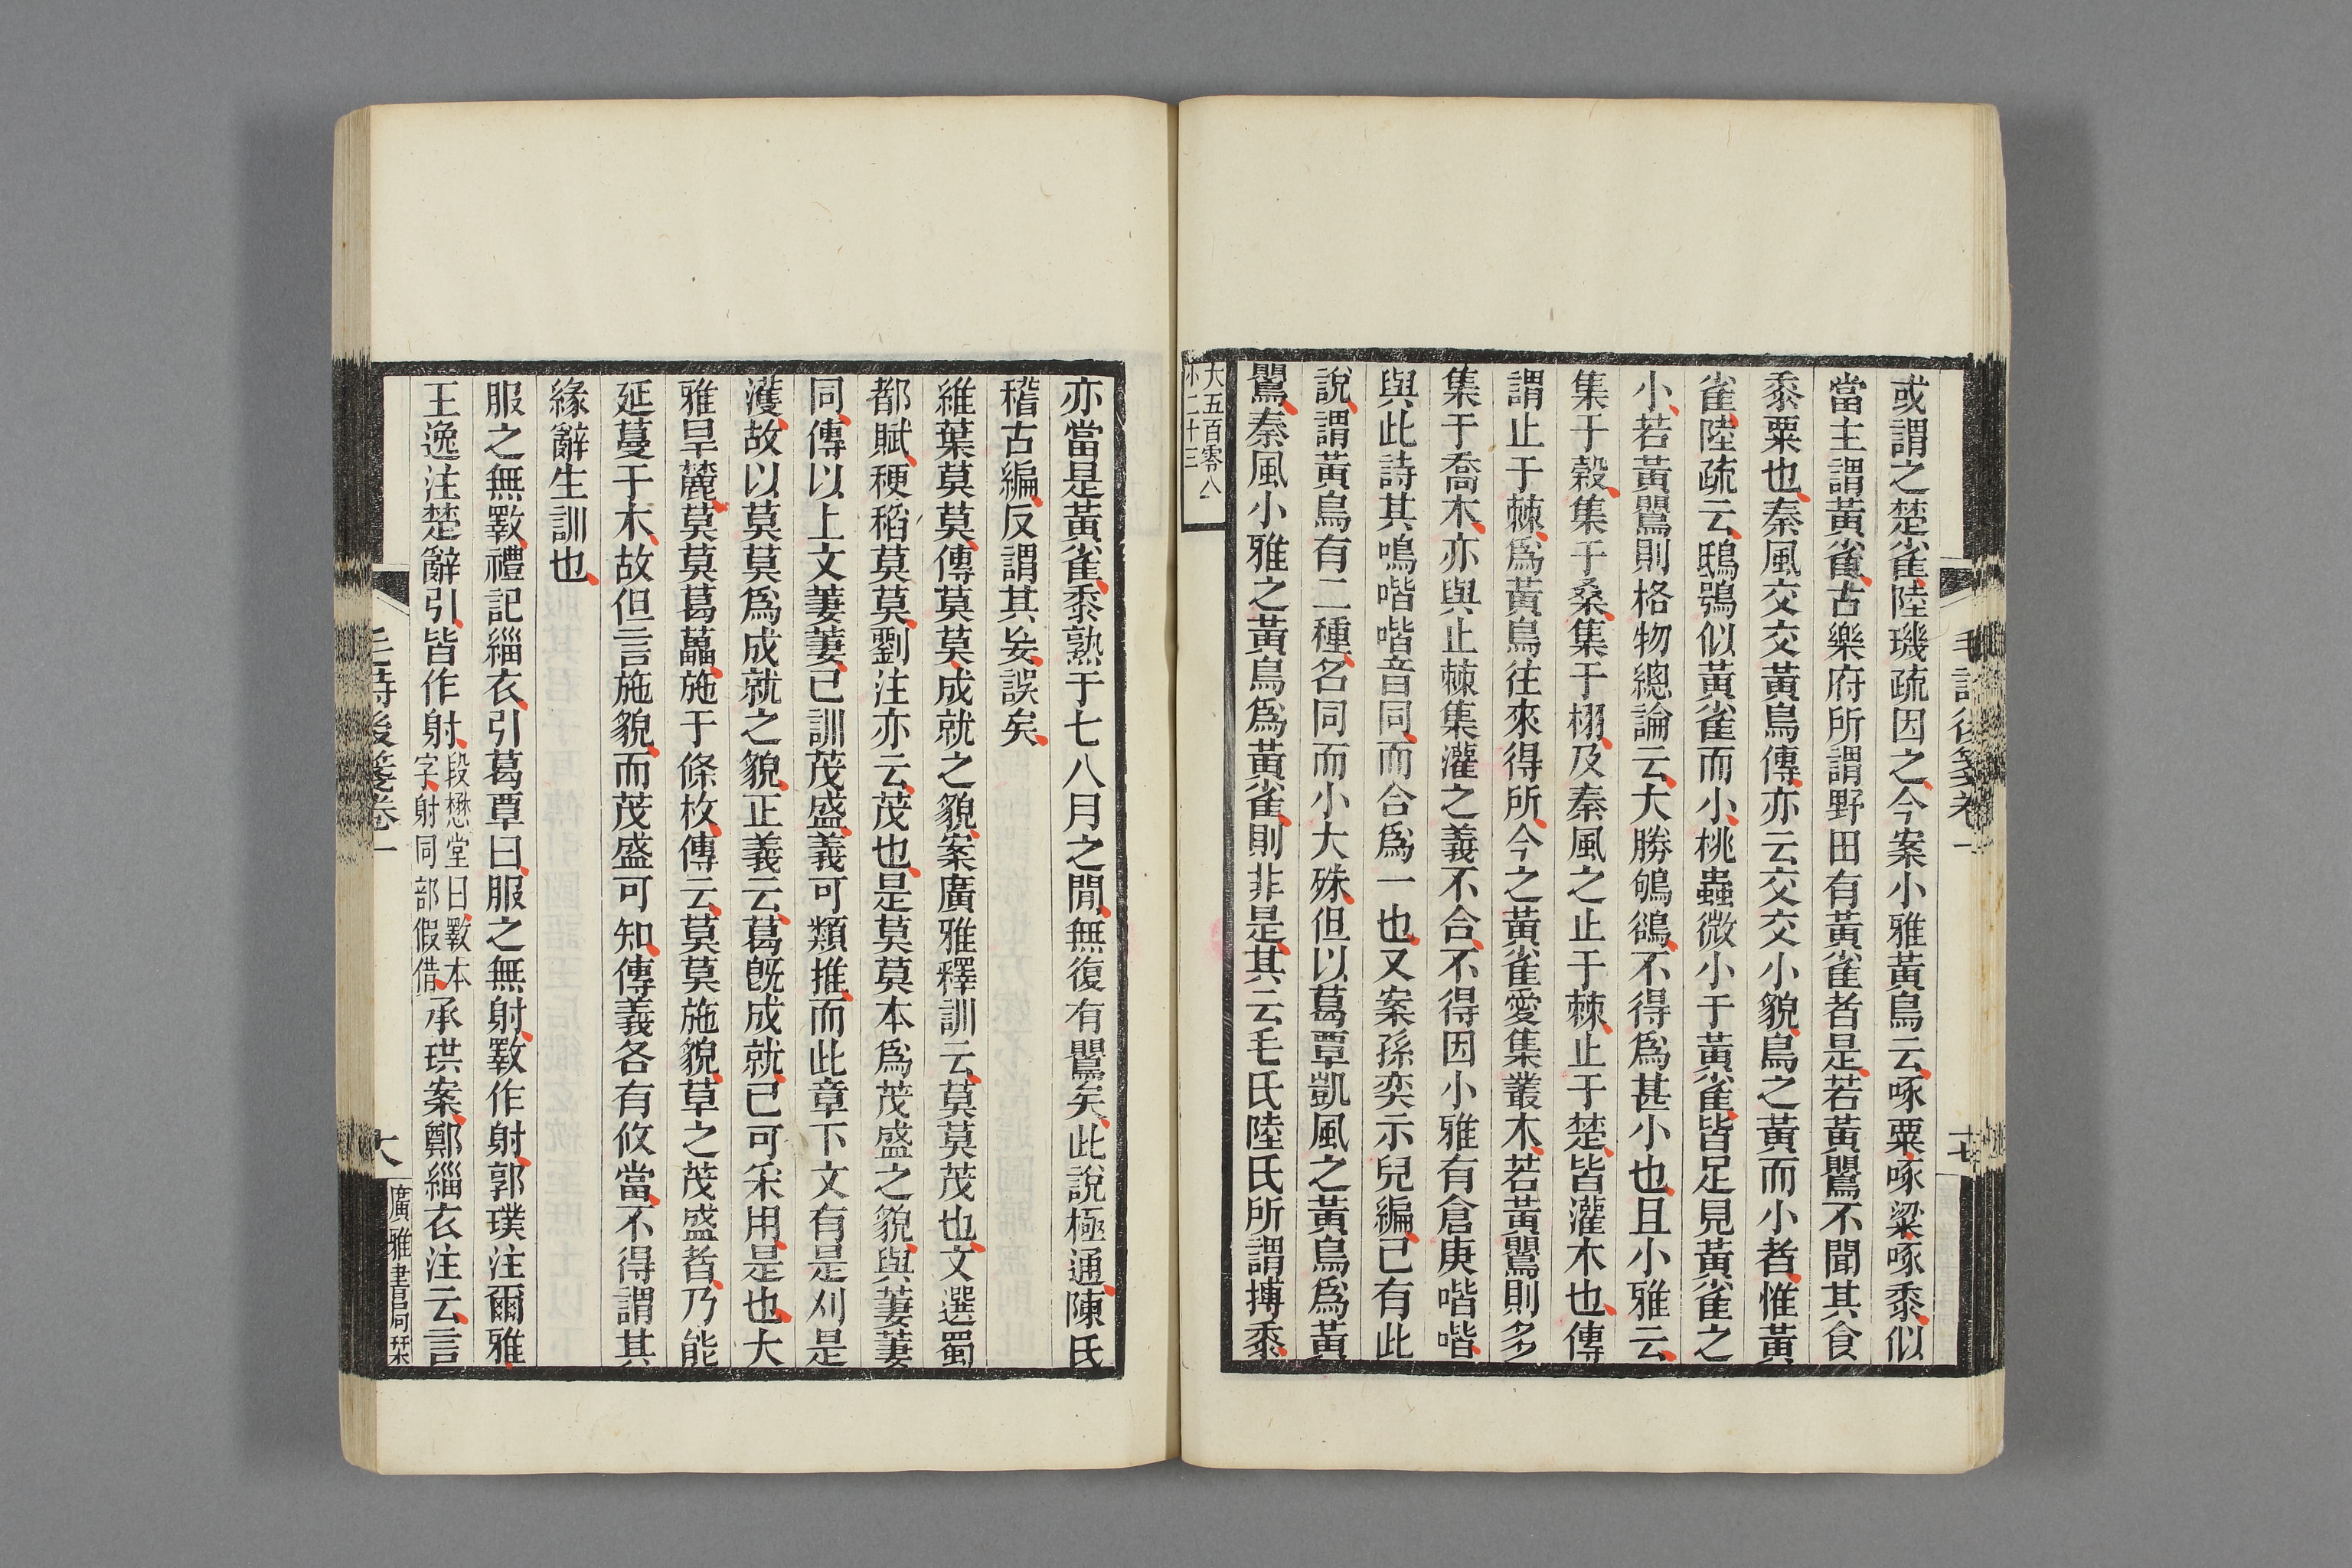 毛詩後箋卷一
或謂之楚雀陸璣疏因之今案小雅黃鳥云啄粟啄粱啄黍似
當主謂黃雀古樂府所謂野田有黃雀者是若黃鸎不聞其食
黍粟也秦風交交黃鳥傳亦云交交小貌鳥之黃而小者惟黃
雀陸疏云鴟鴞似黃雀而小桃蟲微小于黃雀皆足見黃雀之
小若黃鸎則格物總論云大勝鴝鵒不得爲甚小也且小雅云
集于穀集于桑集于栩及秦風之止于棘止于楚皆灌木也傳
謂止于棘爲黃鳥往來得所今之黃雀愛集叢木若黃鸎則多
集于喬木亦與止棘集灌之義不合不得因小雅有倉庚喈喈
與此詩其鳴喈喈音同而合爲一也又案孫奕示兒編已有此
說謂黃鳥有二種名同而小大殊但以葛覃凱風之黃鳥爲黃
鸎秦風小雅之黃鳥爲黃雀則非是其云毛氏陸氏所謂搏黍
大五百零八
小二十三
亦當是黃雀黍熟于七八月之閒無復有鸎矣此說極通陳氏
稽古編反謂其妄誤矣
維葉莫莫傳莫莫成就之貌案廣雅釋訓云莫莫茂也文選蜀
都賦稉稻莫莫劉注亦云茂也是莫莫本爲茂盛之貌與萋萋
同傳以上文萋萋已訓茂盛義可類推而此章下文有是刈是
濩故以莫莫爲成就之貌正義云葛旣成就已可采用是也大
雅旱麓莫莫葛藟施于條枚傳云莫莫施貌草之茂盛者乃能
延蔓于木故但言施貌而茂盛可知傳義各有攸當不得謂其
緣辭生訓也
服之無斁禮記緇衣引葛覃曰服之無射斁作射郭璞注爾雅
王逸注楚辭引皆作射段懋堂曰斁本字射同部假借承珙案鄭緇衣注云言
毛詩後箋卷一
大
廣雅書局栞